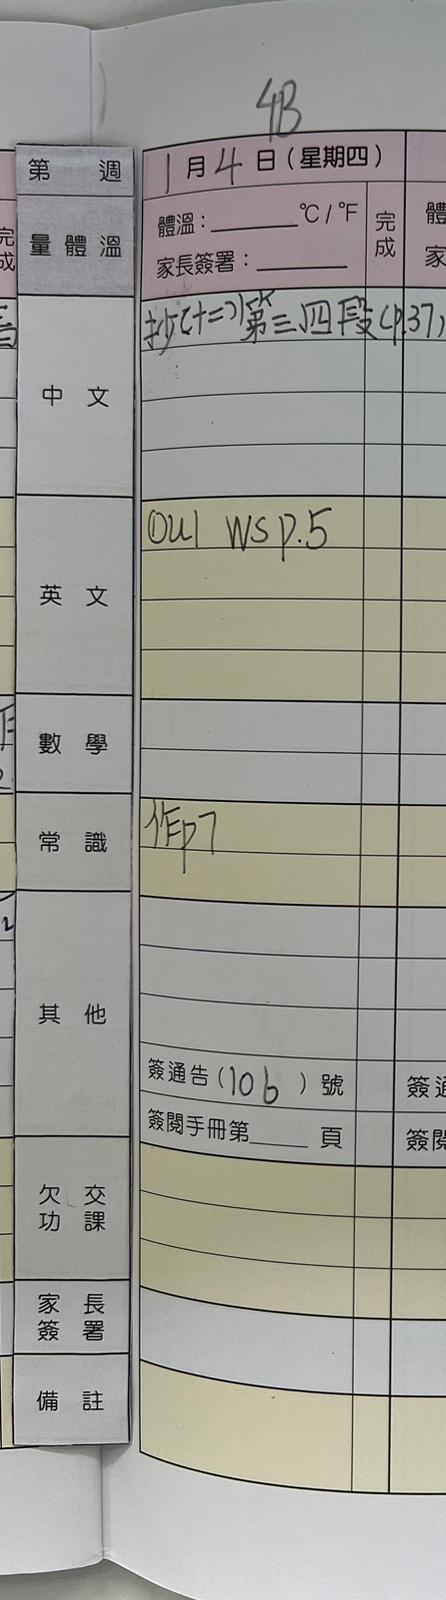 4B
第 週
1月4日(星期四)
量體溫
體溫:______°C/°F
完成
家長簽署:______
中文
抄(十二)第三、四段(p.37)
英文
① U1 WS p.5
數學
常識
作p7
其他
簽通告(106)號
簽閱手冊第____頁
欠交功課
家長簽署
備註